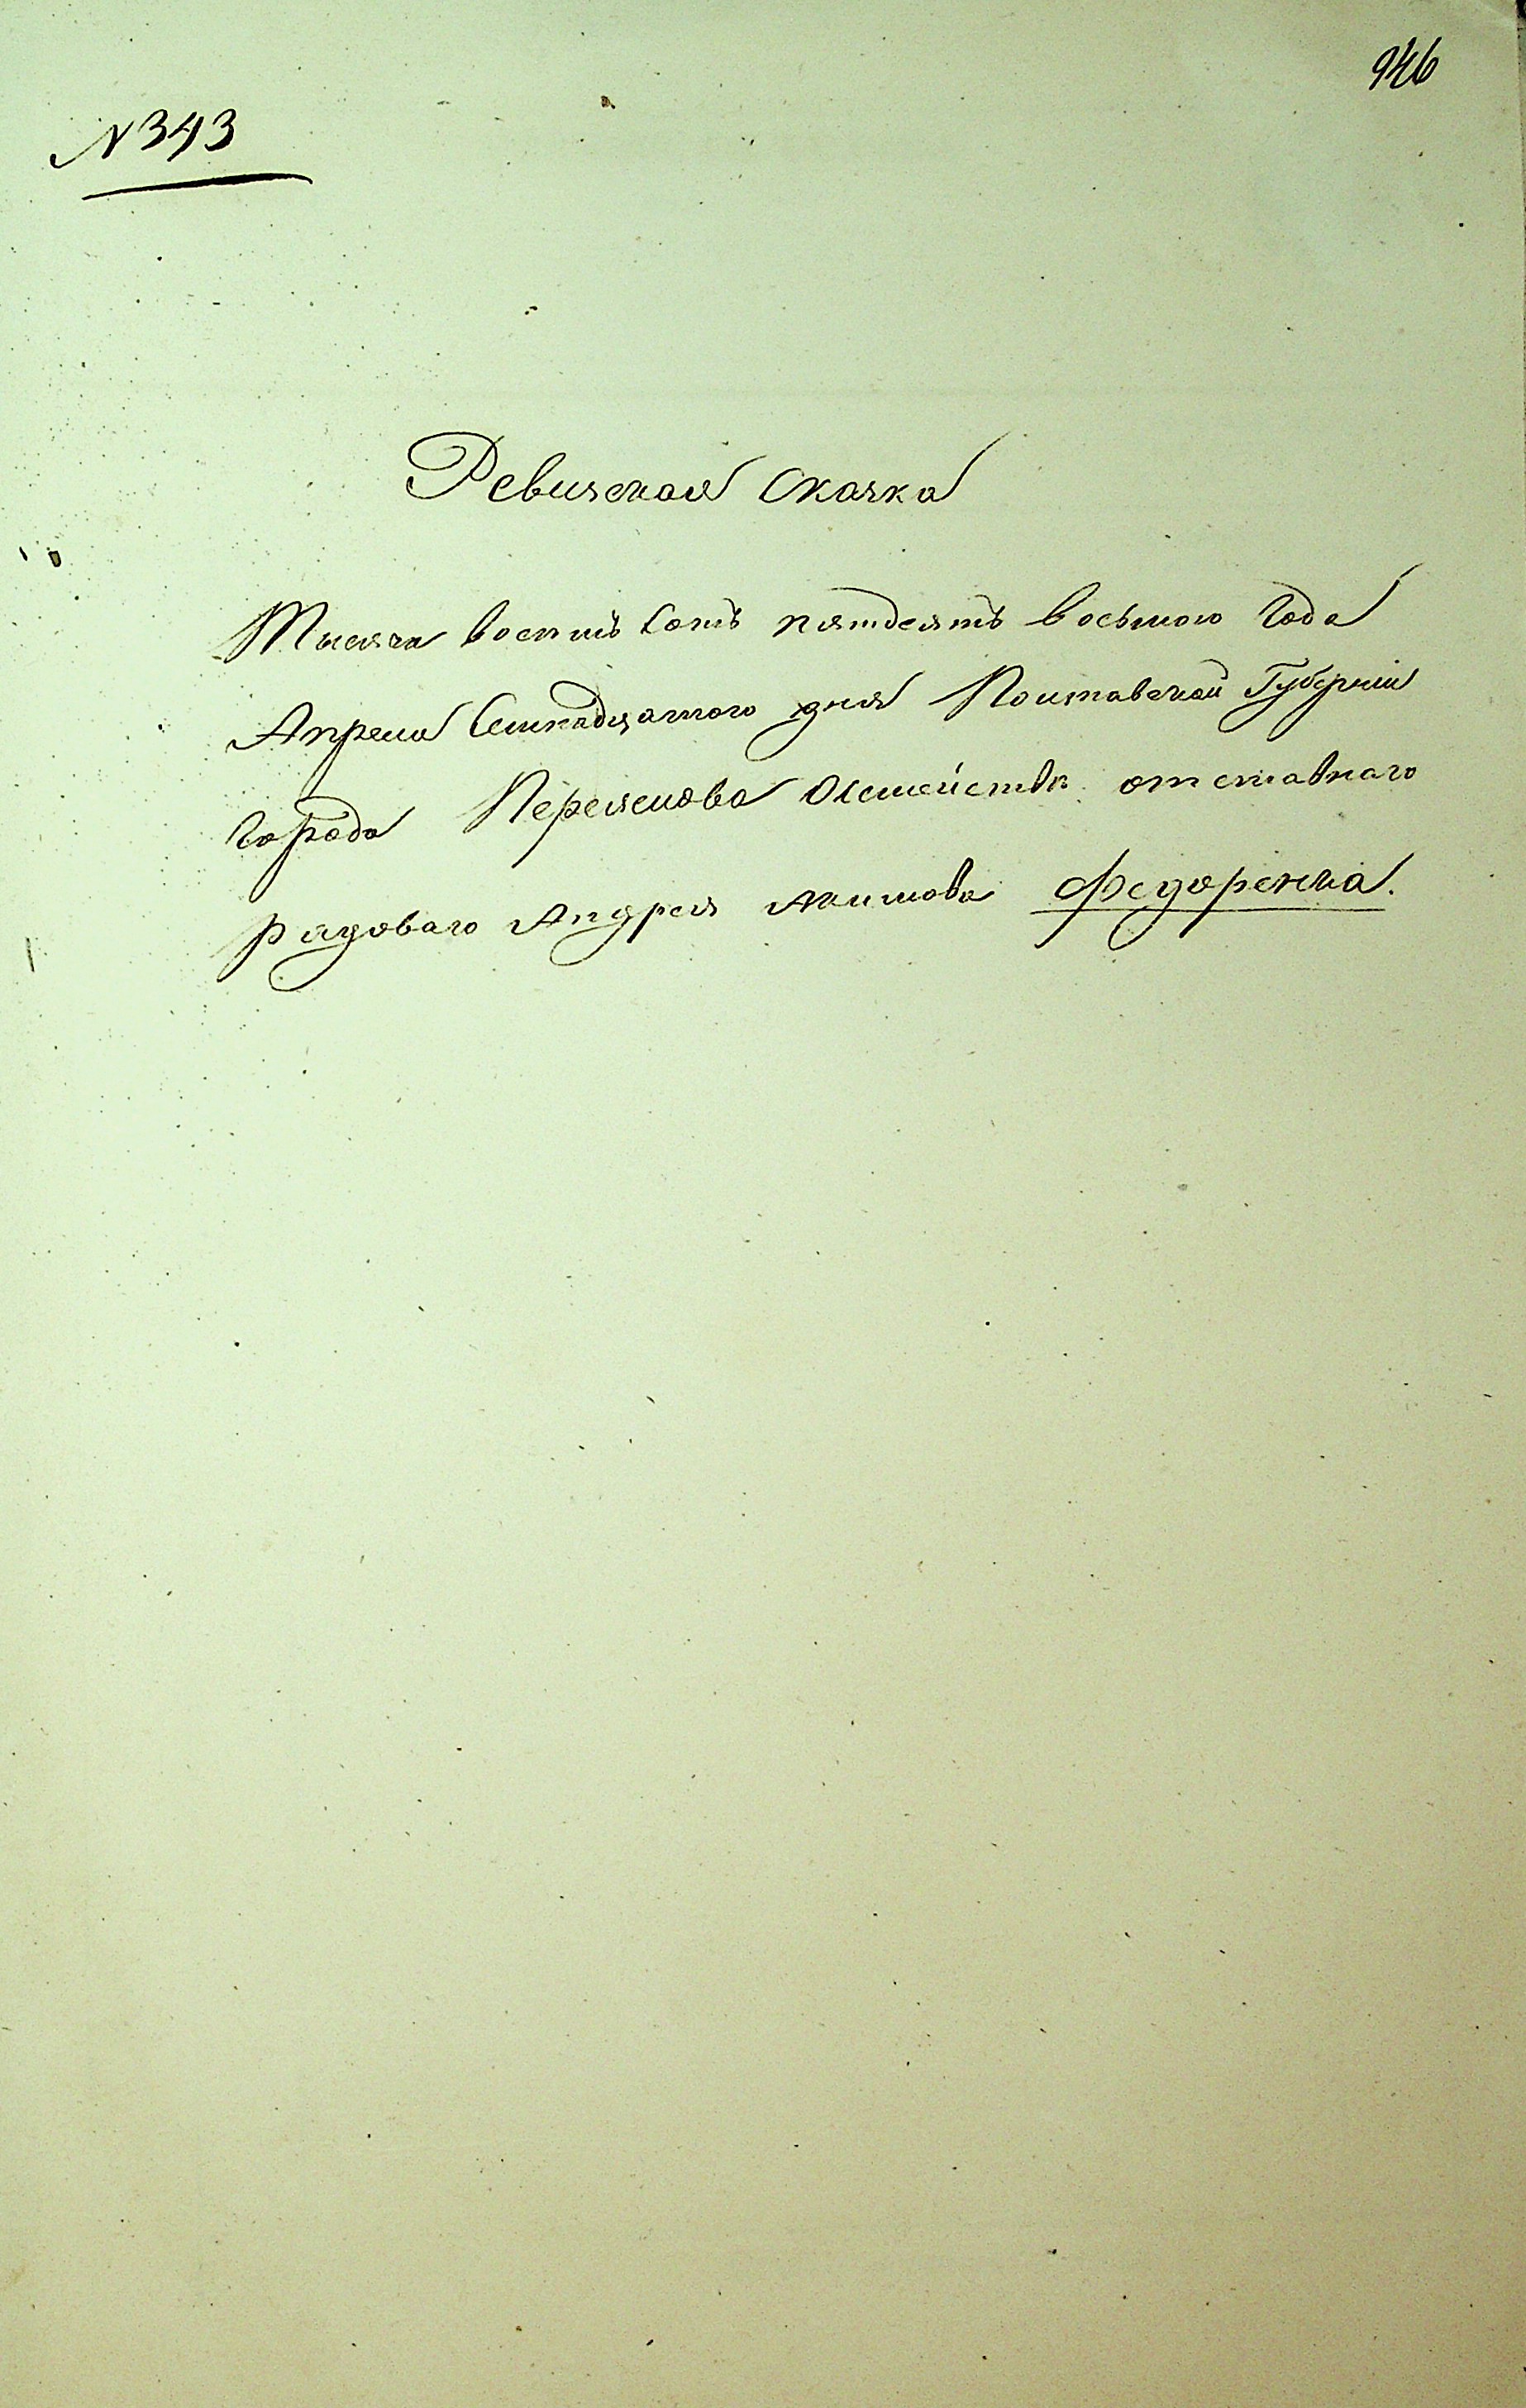 946
N 343
Ревизская Сказка
Тысяча восемь Сотъ пятдесятъ восьмого Года
Апреля Семнадцатого дня Полтавской Губернии
Города Переяслова Осемействе отставнаго
рядоваго Андрея Акимова Федоренка.